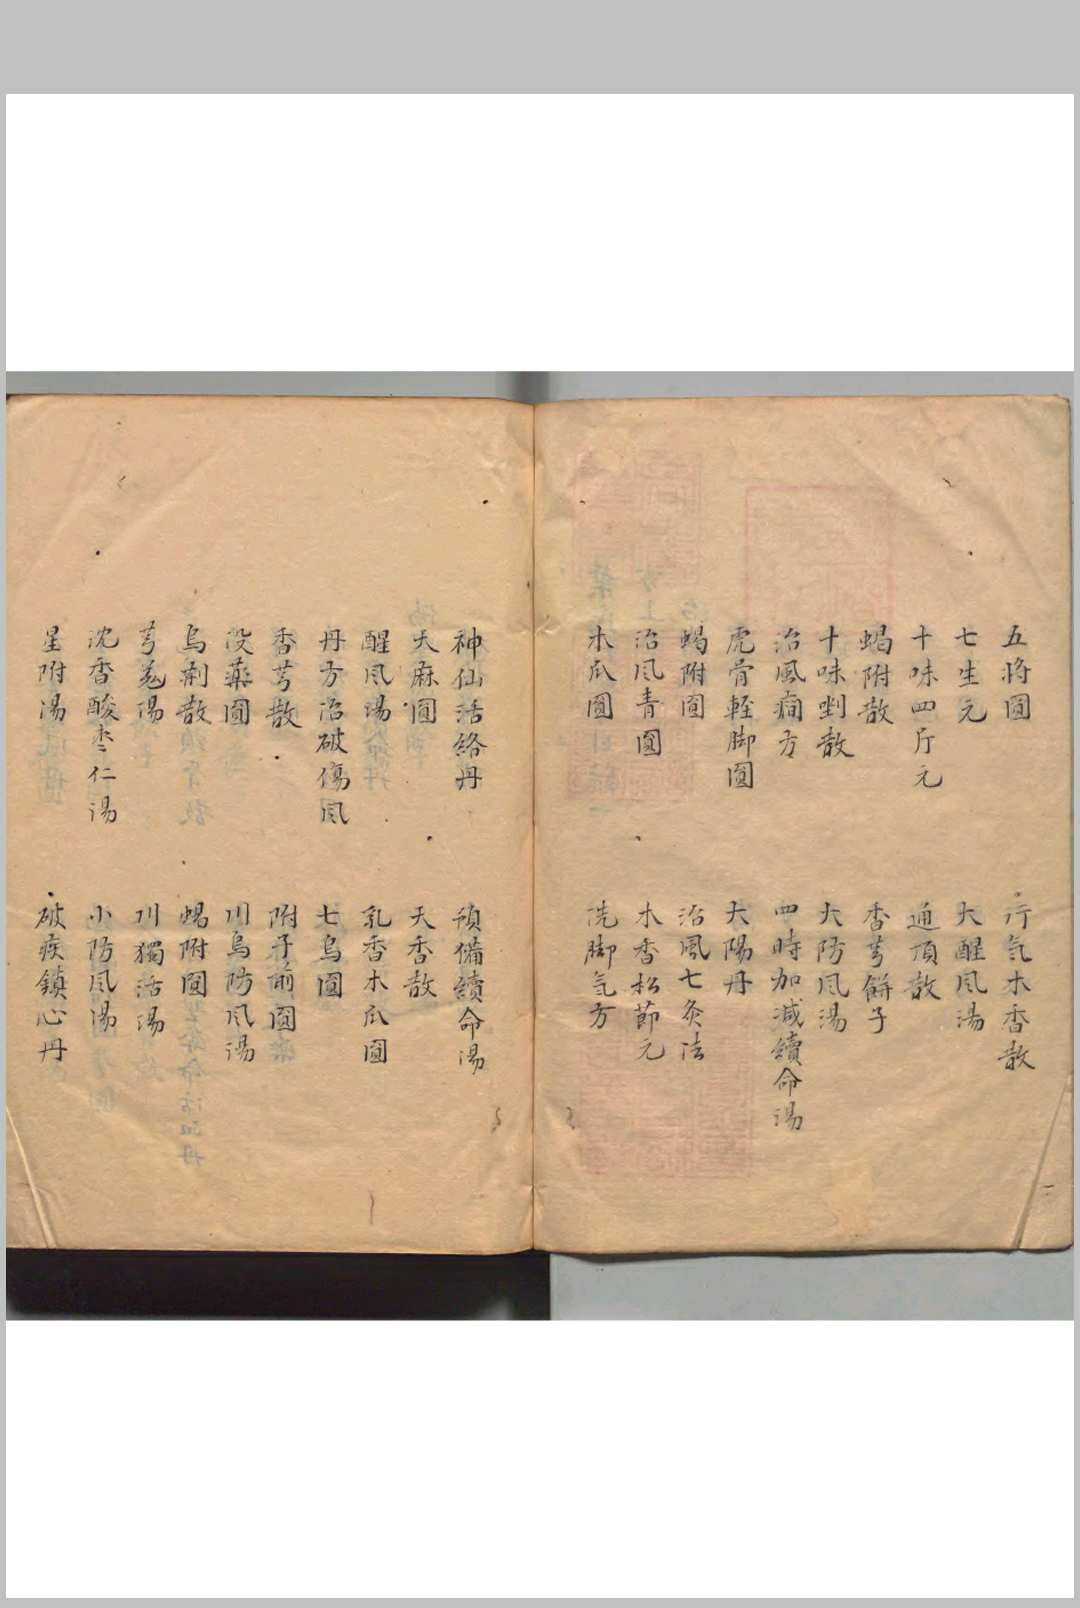 五將圓
行気木香散
七生元
大醒風湯
十味四斤元
通頂散
蝎附散
香芎餅子
十味剉散
大防風湯
治風癇方
四時加減續命湯
虎骨輕脚圓
大陽丹
蝎附圓
治風七灸法
治風青圓
木香松節元
木瓜圓
洗脚気方
神仙活絡丹
預備續命湯
天麻圓
天香散
醒風湯
乳香木瓜圓
丹方治破傷風
七烏圓
香芎散
附子前圓
没藥圓
川烏防風湯
烏荊散
蝎附圓
芎羗湯
川獨活湯
沈香酸枣仁湯
小防風湯
星附湯
破疾鎮心丹